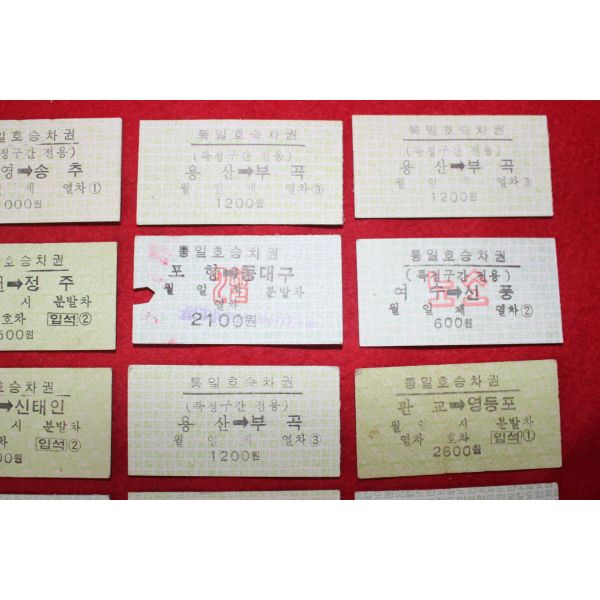 일호승차권
정구간 전용)
영➡송 추
월 제 열차①
000원
통일호승차권
(특정구간 전용)
용 산➡부 곡
월 일 제 열차③
1200원
통일호승차권
(특정구간 전용)
용 산➡부 곡
월 일 제 열차③
1200원
호승차권
➡정 주
시 분발차
호차 입석②
600원
통일호승차권
포 항➡동대구
월 일 시 분발차
열차
2100원
통일호승차권
(특정구간전용)
여 수➡신 풍
노소
월 일 제 열차②
600원
호승차권
➡신태인
시 분발차
호차 입석②
통일호승차권
(특정구간 전용)
용 산➡부 곡
월 일 제 열차③
1200원
통일호승차권
판 교➡영등포
월 일 시 분발차
열차 호차 입석①
2600원